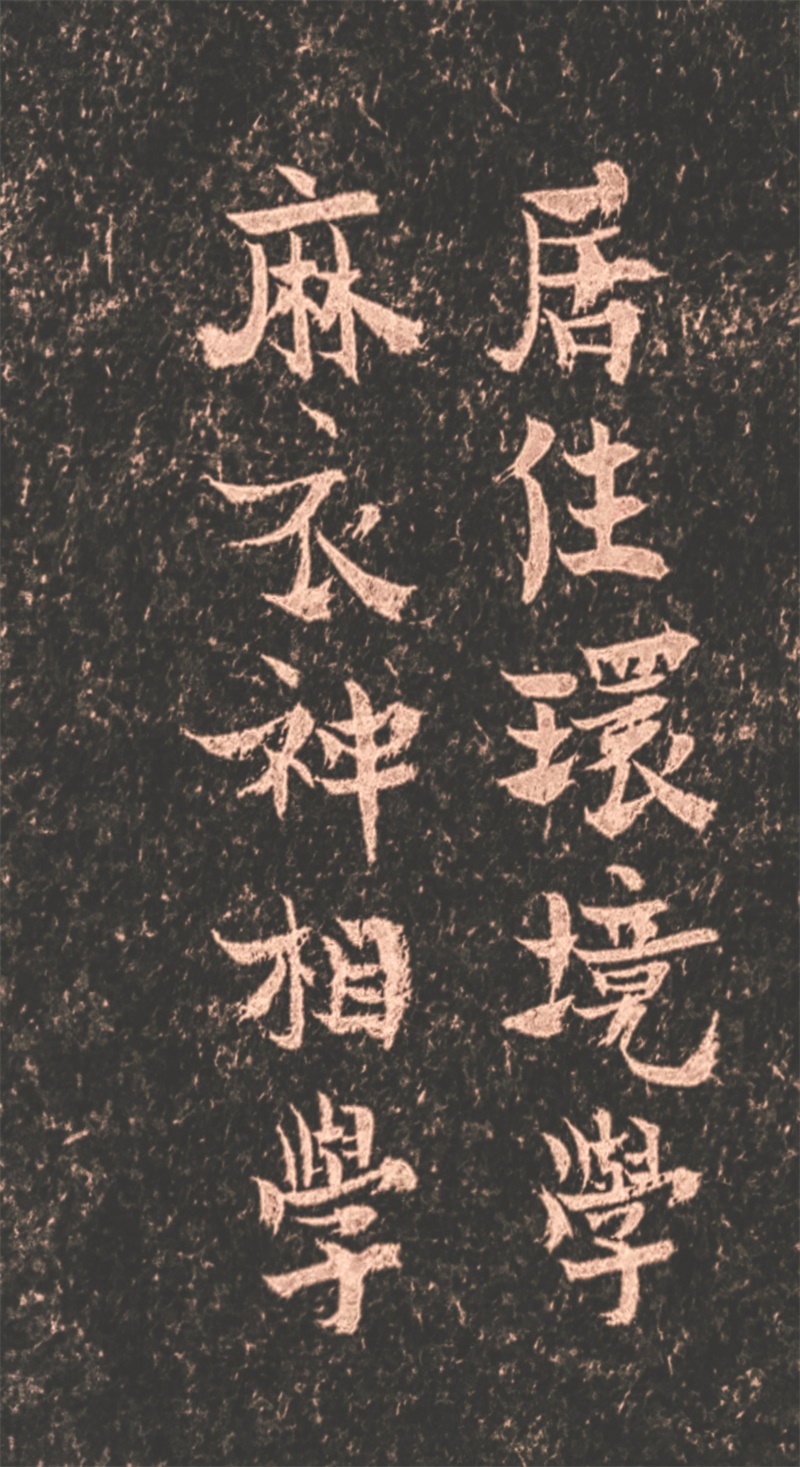 居住環境學
麻衣神相學